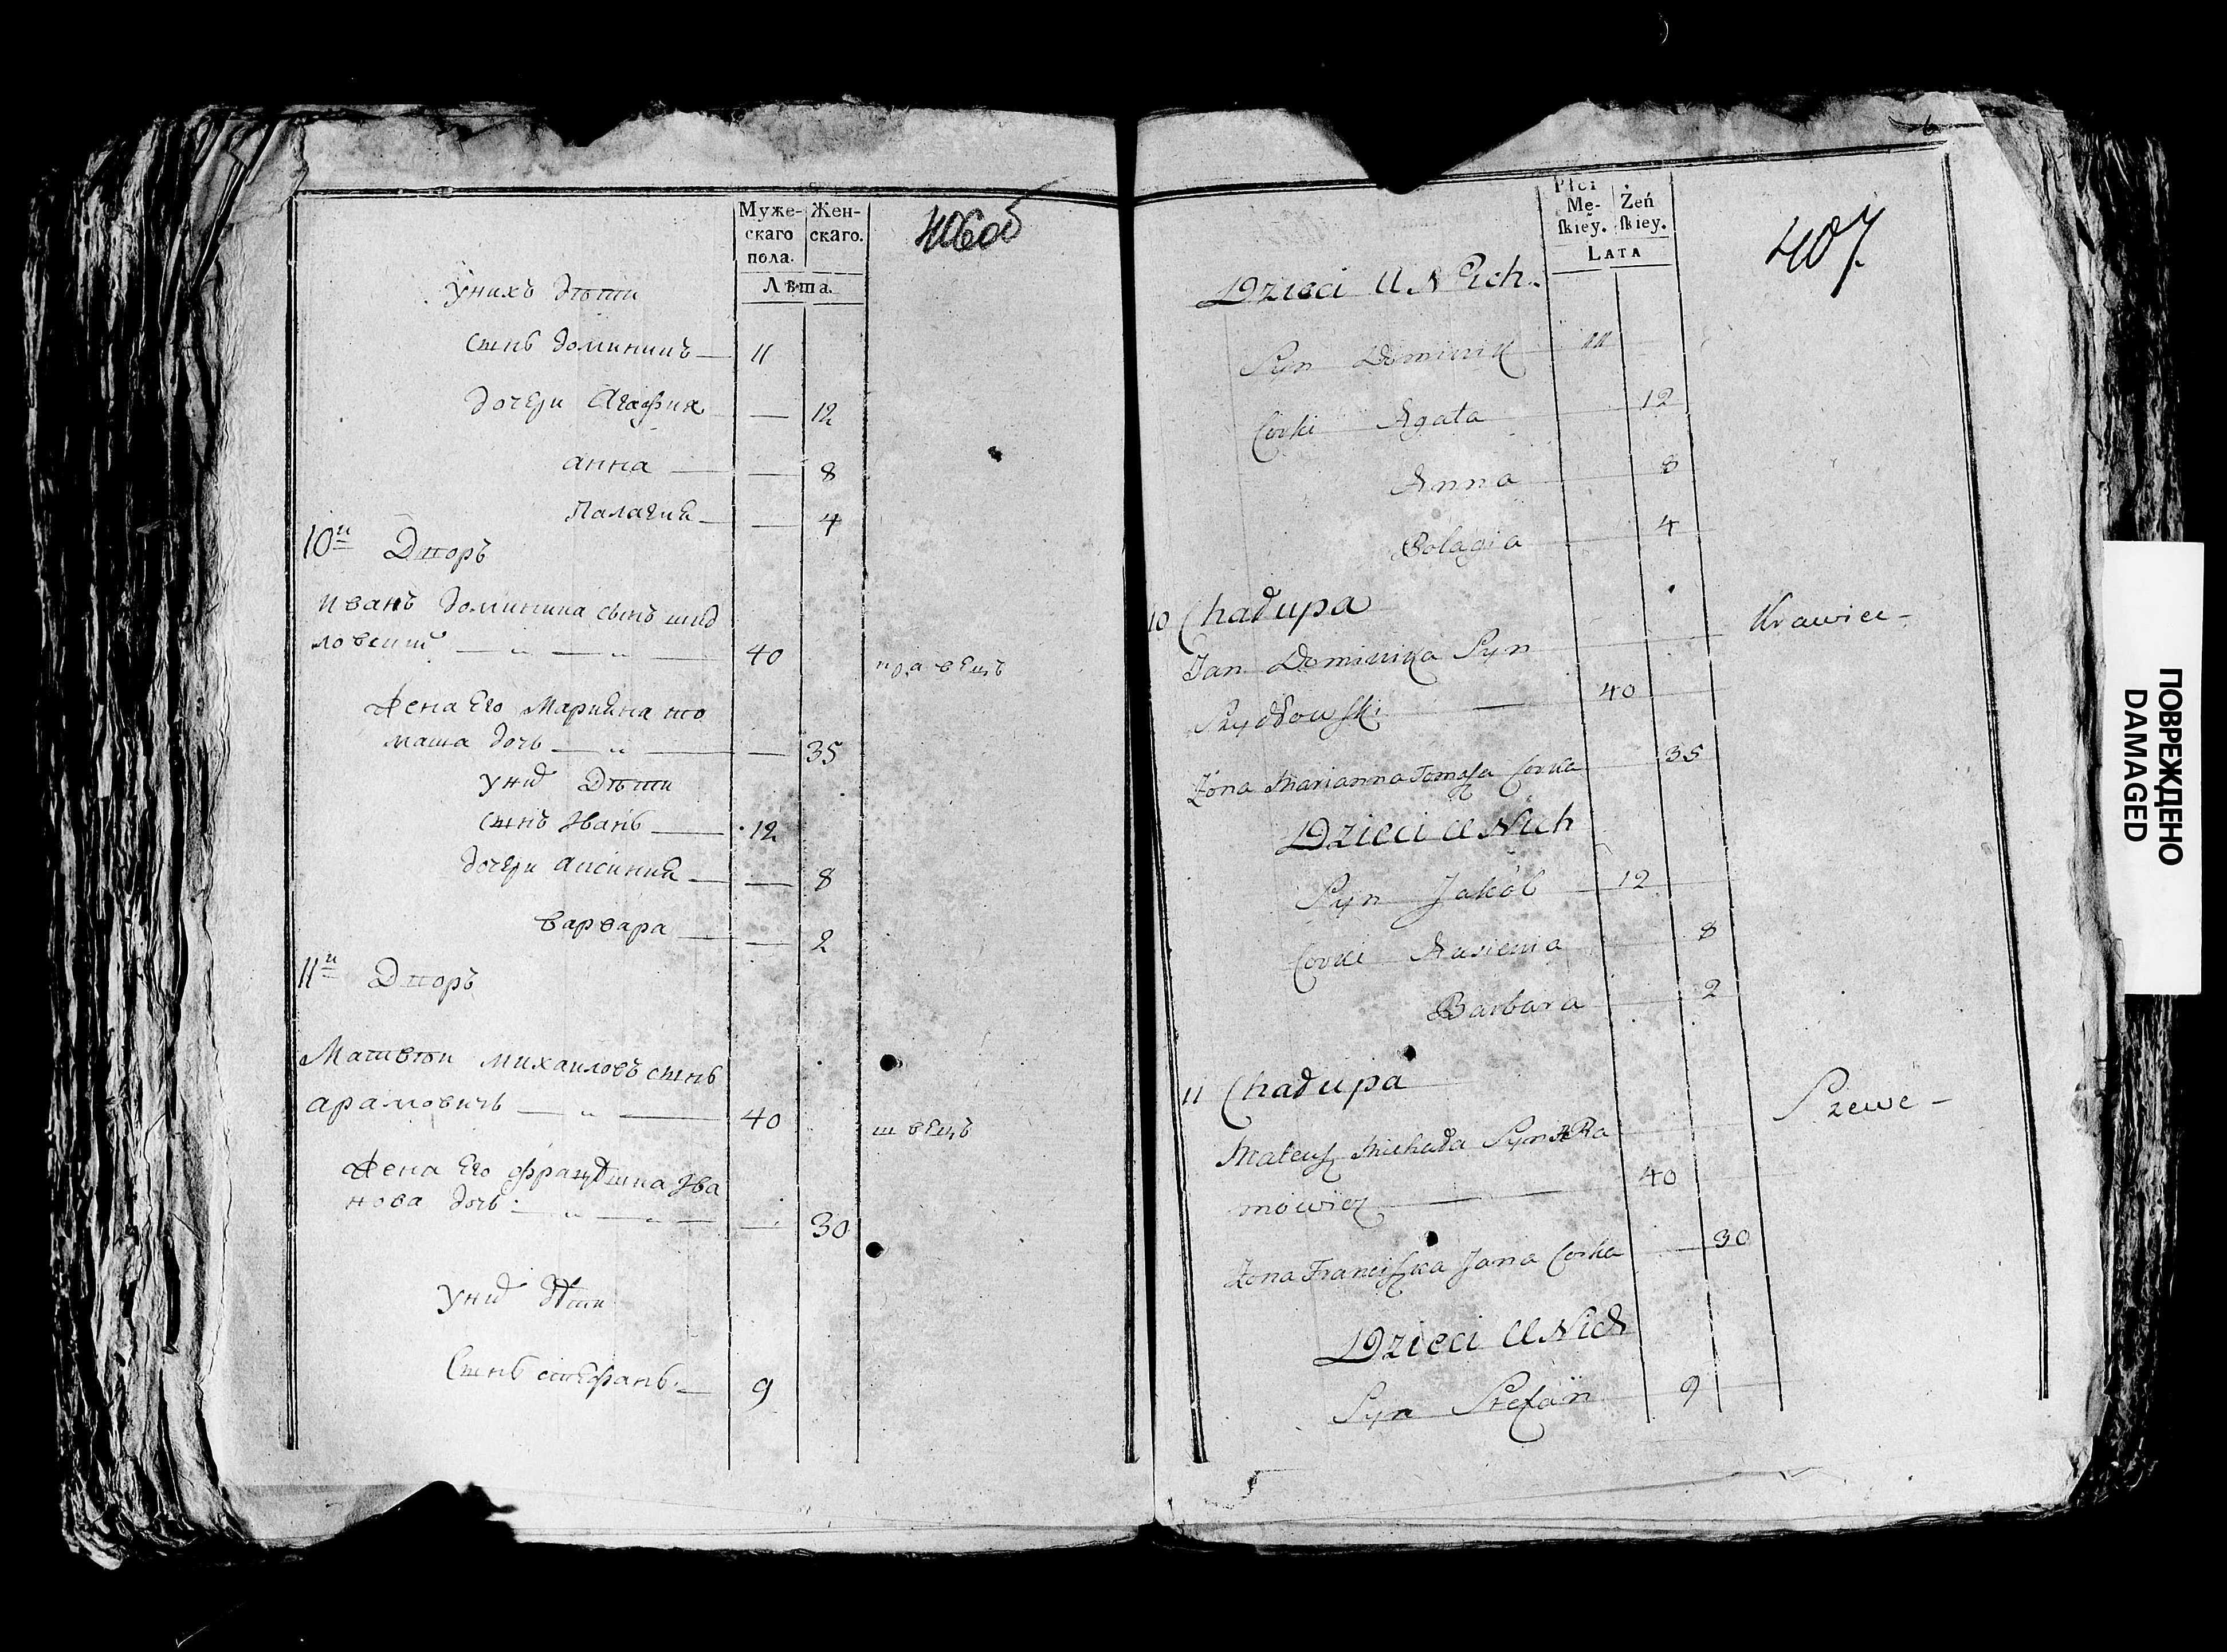 Муже- Жен-
скаго скаго.
пола.
Лѣта.
406об
Унихъ дѣти
сынъ доминикъ — 11
дочери Агафия — 12
анна — 8
Палагия — 4
10й Дворъ
иванъ доминика сынъ шид
ловский — „ — „ — 40 кравецъ
Жена Его Марияна то
маша дочь — „ — 35
Уних Дѣти
сынъ Иванъ — 12
дочери аксиния — 8
варвара — 2
11й Дворъ
Матвѣи михаиловъ сынъ
арамовичъ — „ — 40 швецъ
Жена Его францишка Ива
нова дочь — „ — „ — 30
Уних дѣти
Сынъ стефанъ — 9
Płci
Mę- Żeń
ſkiey. ſkiey.
LATA
407.
Dzieci U Nich.
Syn Dominik 11
Corki Agata 12
Anna 8
Polagia 4
10 Chałupa
Krawiec —
Jan Dominika Syn
Szydłowſki — 40
Żona Marianna Tomaſza Corka 35
Dzieci U Nich
Syn Jakób 12
Corki Axienia 8
Barbara 2
11 Chałupa
Szewc —
Mateuſz Michała Syn Ara
mowicz — 40
Żona Franciſzka Jana Corka 30
Dzieci U Nich
Syn Stefan 9
ПОВРЕЖДЕНО
DAMAGED